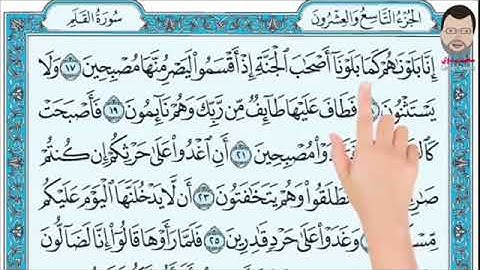 الجُزْءُ التَّاسِعُ وَالعِشْرُونَ
سُورَةُ القَلَمِ
إِنَّا بَلَوْنَٰهُمْ كَمَا بَلَوْنَآ أَصْحَٰبَ ٱلْجَنَّةِ إِذْ أَقْسَمُوا۟ لَيَصْرِمُنَّهَا مُصْبِحِينَ ١٧ وَلَا
يَسْتَثْنُونَ فَطَافَ عَلَيْهَا طَآئِفٌ مِّن رَّبِّكَ وَهُمْ نَآئِمُونَ ١٩ فَأَصْبَحَتْ
مُصْبِحِينَ ٢١ أَنِ ٱغْدُوا۟ عَلَىٰ حَرْثِكُمْ إِن كُنتُمْ
وَهُمْ يَتَخَٰفَتُونَ ٢٣ أَن لَّا يَدْخُلَنَّهَا ٱلْيَوْمَ عَلَيْكُم
مِّسْكِينٌ وَغَدَوْا۟ عَلَىٰ حَرْدٍ قَٰدِرِينَ ٢٥ فَلَمَّا رَأَوْهَا قَالُوٓا۟ إِنَّا لَضَآلُّونَ